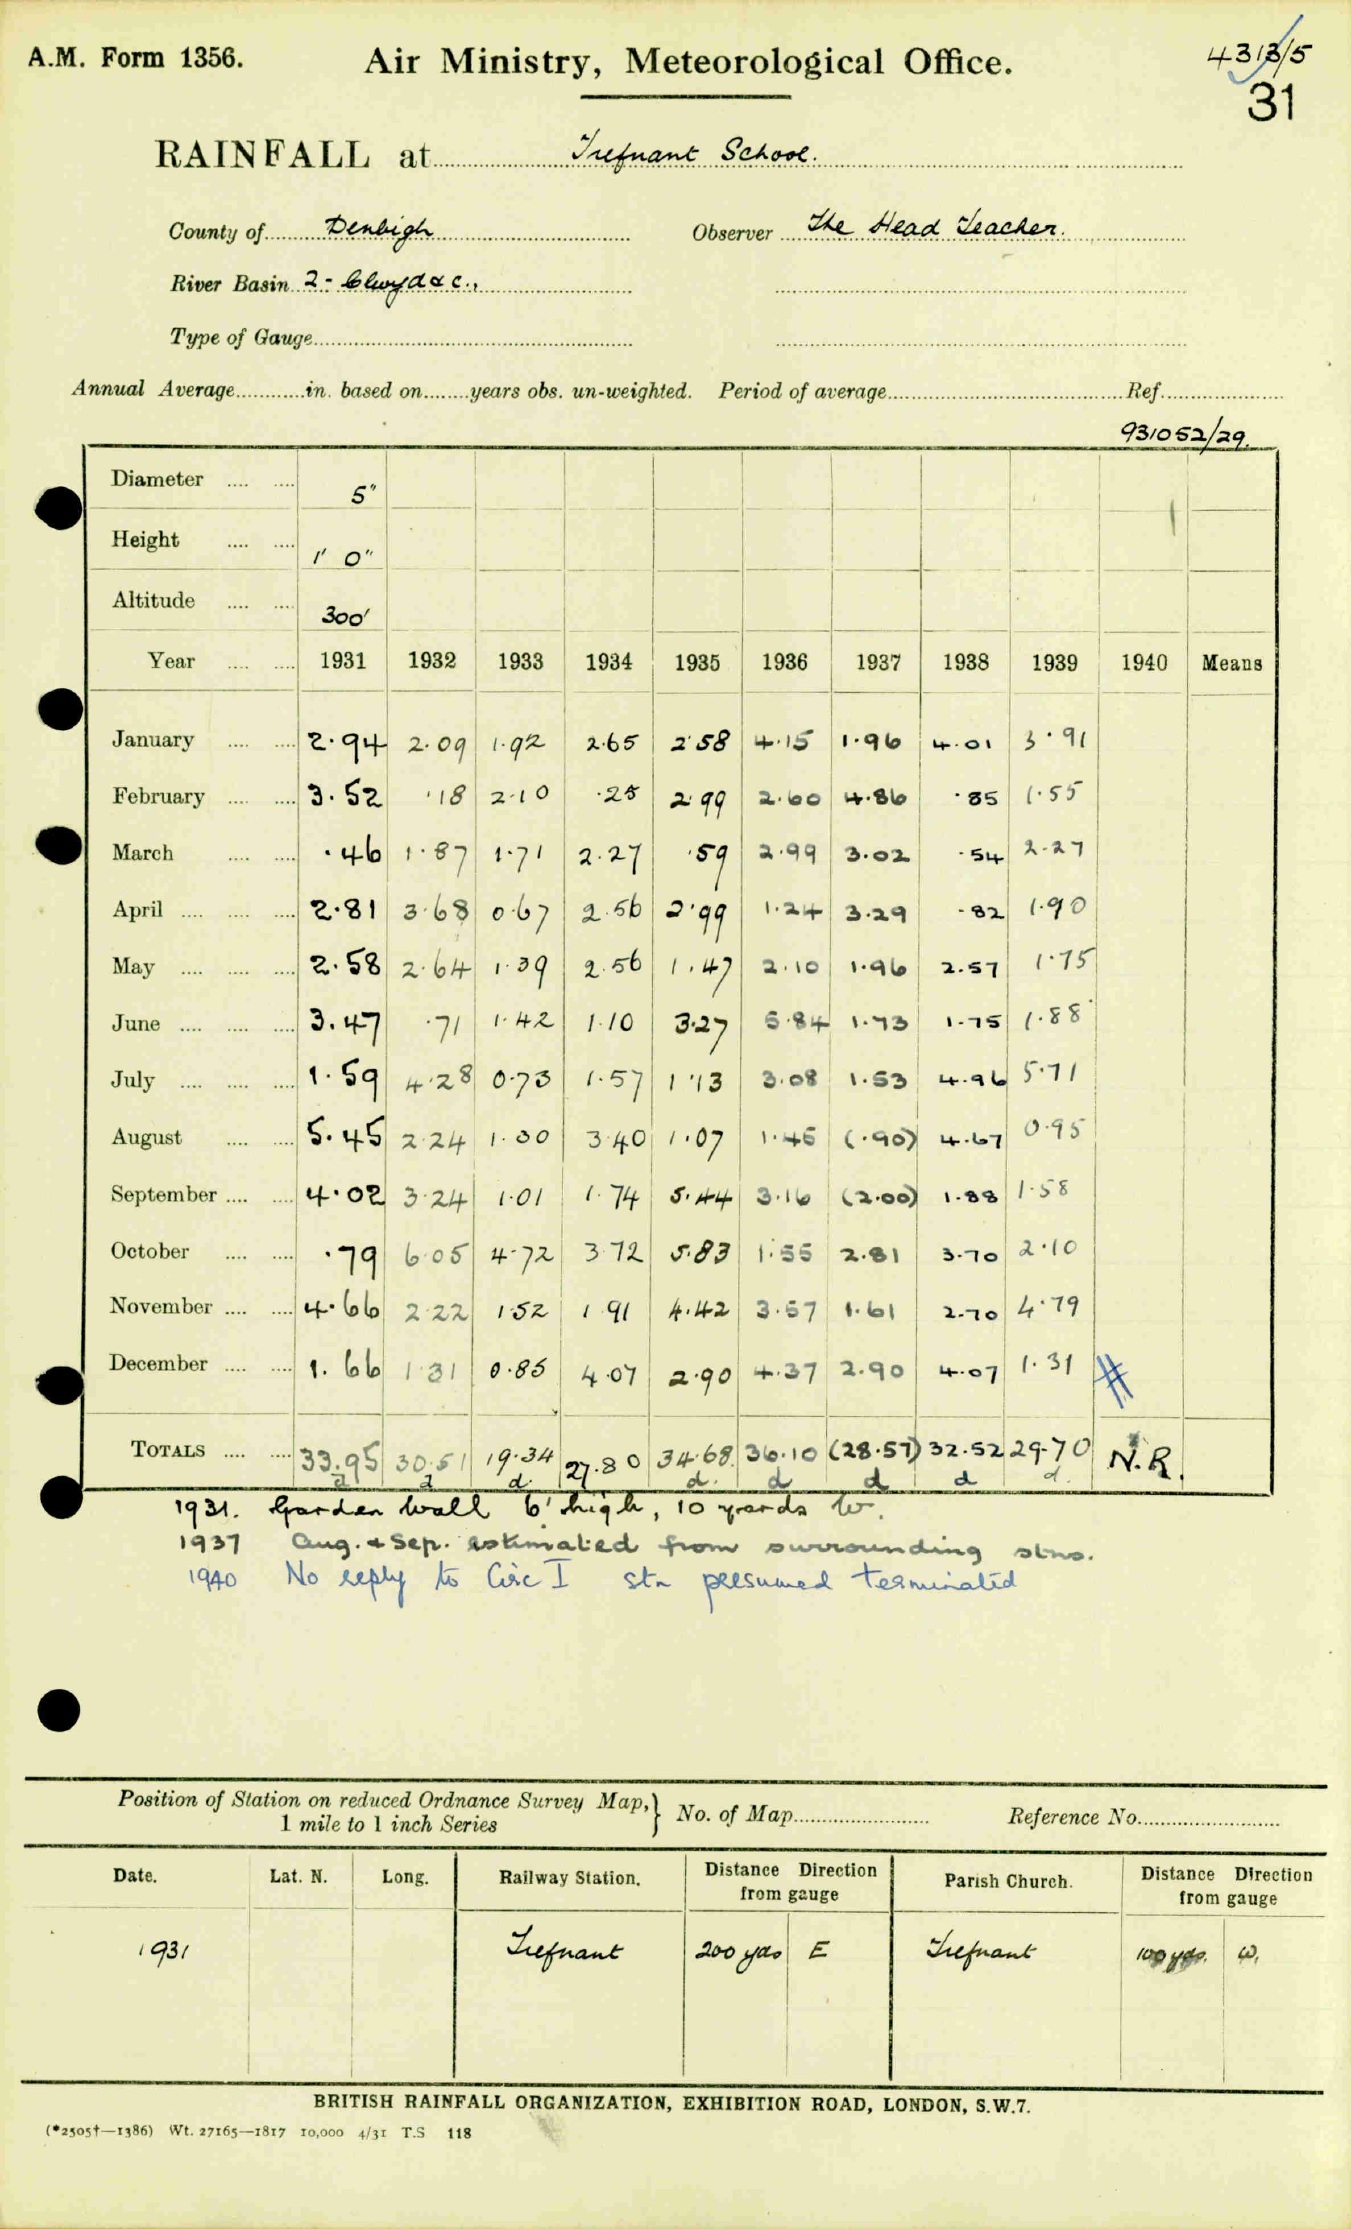 A.M. Form 1356. Air Ministry, Meteorological Office. 4313/5
31
RAINFALL at Trefnant School.
County of Denbigh Observer The Head Teacher.
River Basin 2 - Clwyd & c.,
Type of Gauge
Annual Average in. based on years obs. un-weighted. Period of average Ref.
931052/29
Diameter 5"
Height 1' 0"
Altitude 300'
Year 1931 1932 1933 1934 1935 1936 1937 1938 1939 1940 Means
January 2.94 2.09 1.92 2.65 2.58 4.15 1.96 4.01 3.91
February 3.52 .18 2.10 .25 2.99 2.60 4.86 .85 1.55
March .46 1.87 1.71 2.27 .59 2.99 3.02 .54 2.27
April 2.81 3.68 0.67 2.56 2.99 1.24 3.29 .82 1.90
May 2.58 2.64 1.39 2.56 1.47 2.10 1.96 2.57 1.75
June 3.47 .71 1.42 1.10 3.27 5.84 1.73 1.75 1.88
July 1.59 4.28 0.73 1.57 1.13 3.08 1.53 4.96 5.71
August 5.45 2.24 1.30 3.40 1.07 1.45 (.90) 4.67 0.95
September 4.02 3.24 1.01 1.74 5.44 3.16 (2.00) 1.88 1.58
October .79 6.05 4.72 3.72 5.83 1.55 2.81 3.70 2.10
November 4.66 2.22 1.52 1.91 4.42 3.57 1.61 2.70 4.79
December 1.66 1.31 0.85 4.07 2.90 4.37 2.90 4.07 1.31 #
TOTALS 33.95 30.51 19.34 27.80 34.68 36.10 (28.57) 32.52 29.70 N.R.
d d d d d d d d
1931. Garden wall 6' high, 10 yards W.
1937 Aug. & Sep. estimated from surrounding stns.
1940 No reply to Circ I stn presumed terminated
Position of Station on reduced Ordnance Survey Map, } No. of Map Reference No.
1 mile to 1 inch Series
Date. Lat. N. Long. Railway Station. Distance Direction from gauge Parish Church. Distance Direction from gauge
1931 Trefnant 200 yds E Trefnant 100 yds. W.
BRITISH RAINFALL ORGANIZATION, EXHIBITION ROAD, LONDON, S.W.7.
(*2505†—1386) Wt. 27165—1817 10,000 4/31 T.S 118